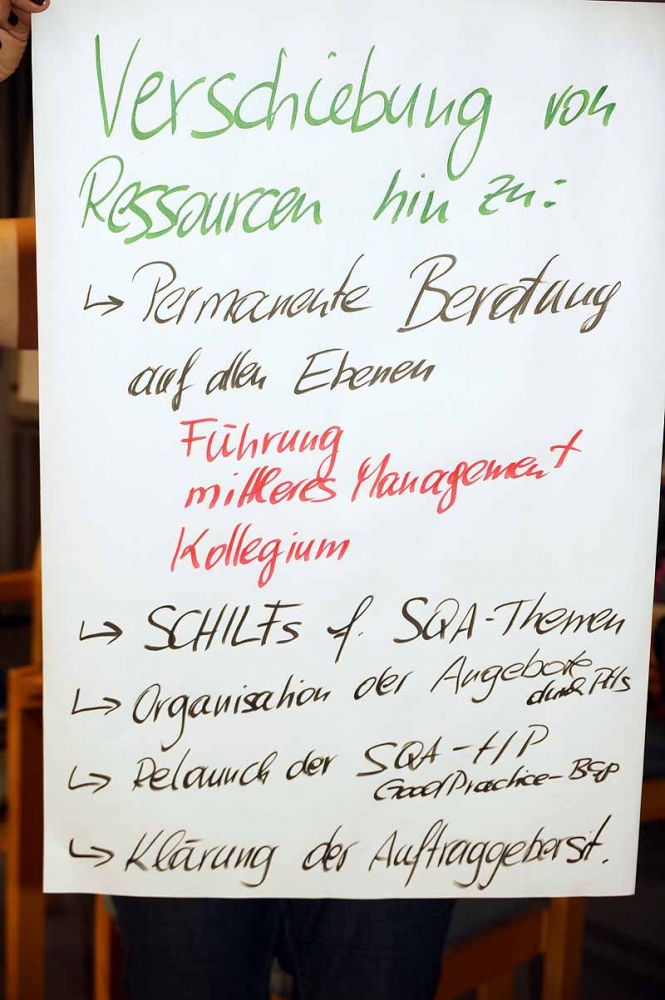 Verschiebung von
Ressourcen hin zu:
↳ Permanente Beratung
auf allen Ebenen
Führung
mittleres Management
Kollegium
↳ SCHILFs f. SQA-Themen
↳ Organisation der Angebote
durch PHs
↳ Relaunch der SQA-HP
Good Practice-Bsp
↳ Klärung der Auftraggebersit.